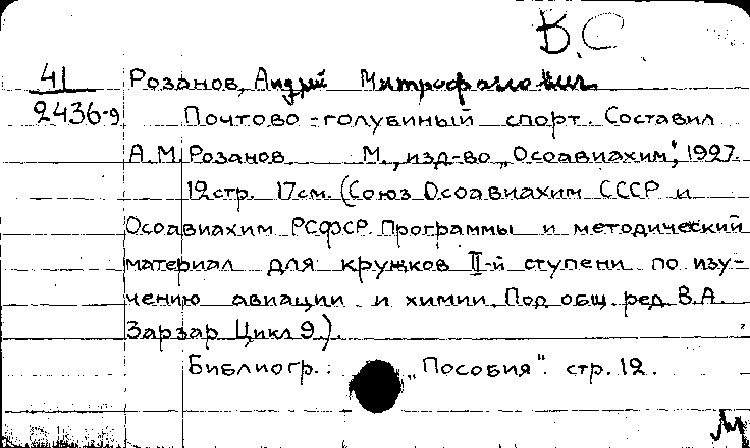 В.С
41
2436-9
Розанов, Андрей Митрофанович
Почтово-голубиный спорт. Составил
А.М. Розанов М., изд-во „Осоавиахим", 1927.
12стр. 17см. (Союз Осоавиахим СССР и
Осоавиахим РСФСР. Программы и методический
материал для кружков II-й ступени по изу-
чению авиации и химии. Под общ. ред. В.А.
Зарзар Цикл 9.).
Библиогр.: „Пособия". стр. 12.